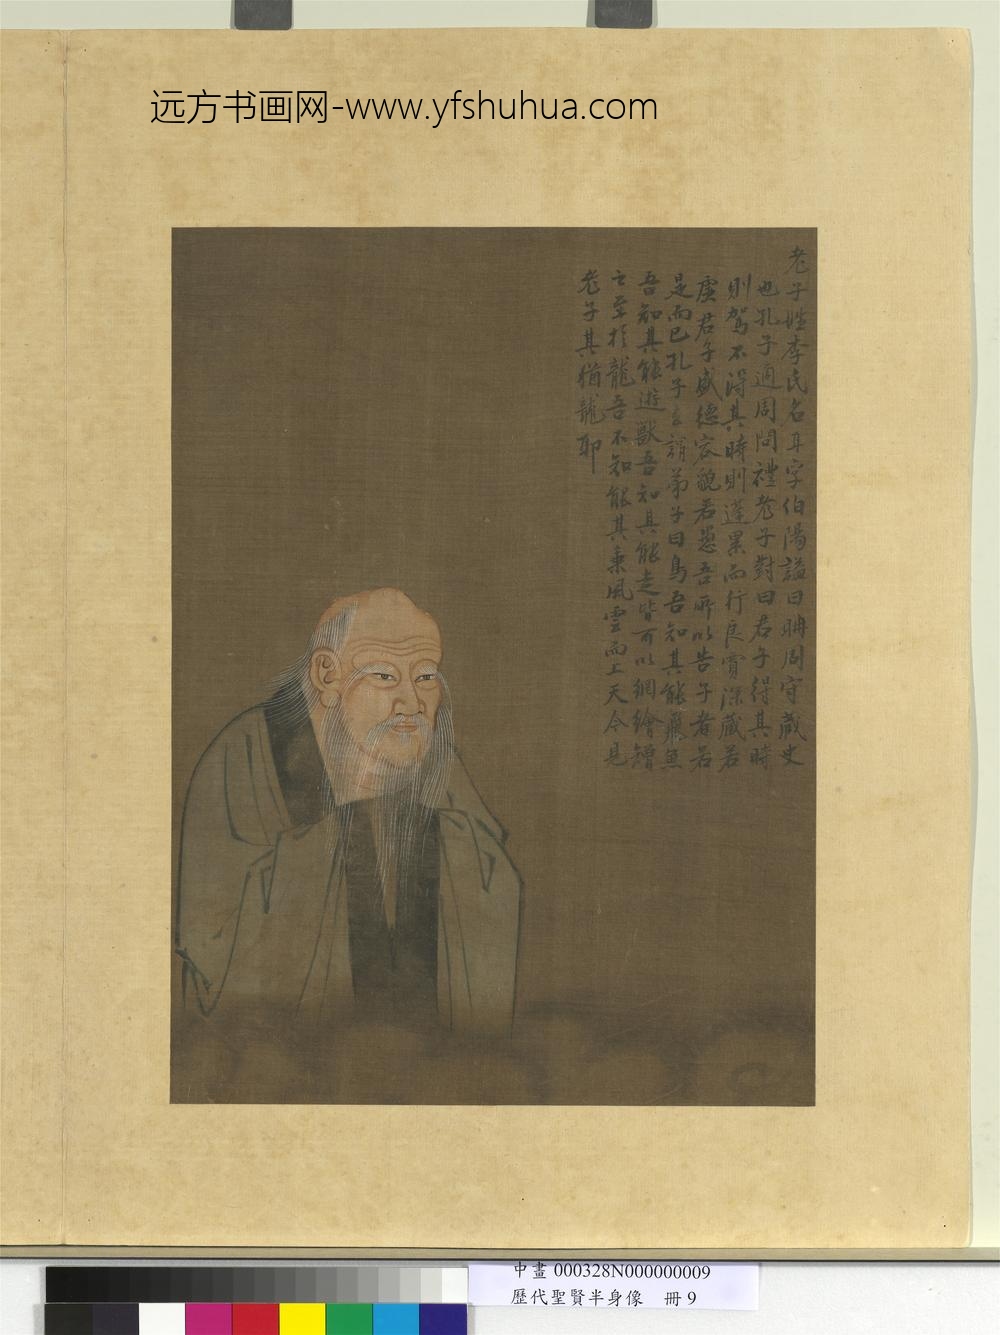 远方书画网-www.yfshuhua.com
老子姓李氏名耳字伯陽謚曰聃周守藏史
也孔子適周問禮老子對曰君子得其時
則駕不得其時則蓬累而行良賈深藏若
虛君子盛德容貌若愚吾所以告子者若
是而已孔子去謂弟子曰鳥吾知其能飛魚
吾知其能游獸吾知其能走皆可以網繒矰
之至於龍吾不知能其乗風雲而上天今見
老子其猶龍耶
中畫 000328N000000009
歷代聖賢半身像 冊 9